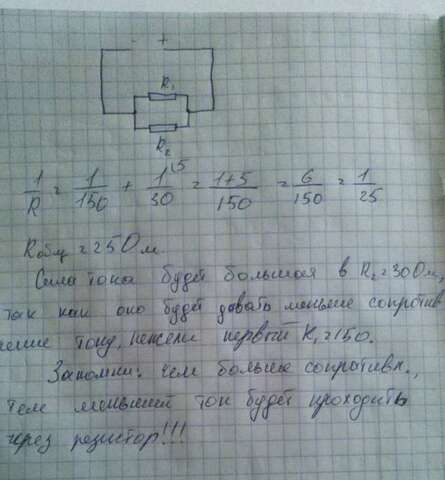 - +
R₁
R₂
1/R = 1/150 + 1/30 ⁽⁵ = 1+5/150 = 6/150 = 1/25
Rобщ = 25 Ом.
Сила тока будет большая в R₂ = 30 Ом,
так как оно будет давать меньше сопротив
ление току, нежели первый R₁ = 150.
Запомни: чем больше сопротивл.,
тем меньший ток будет проходить
через резистор!!!